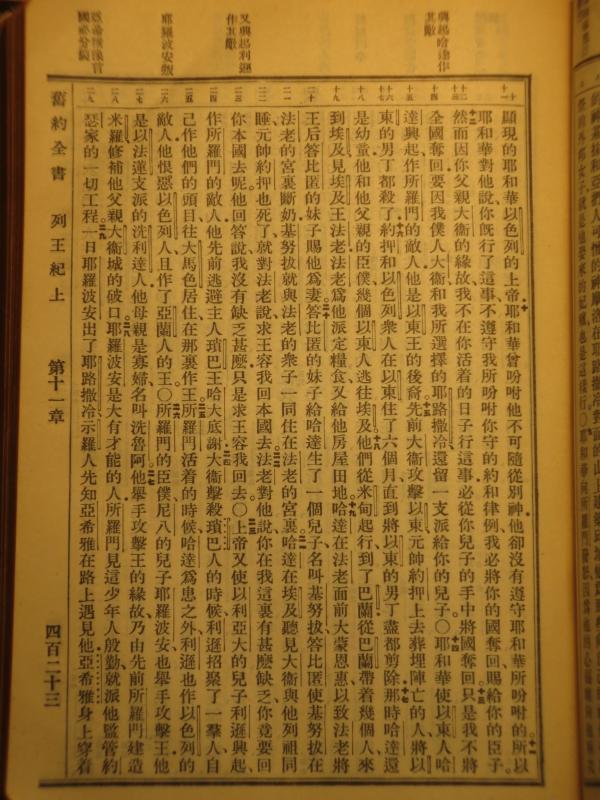 興起哈達作
其敵
又興起利遜
作其敵
耶羅波安叛
顯現的耶和華以色列的上帝耶和華曾吩咐他不可隨從別神他卻沒有遵守耶和華所吩咐的所以
耶和華對他說你既行了這事不遵守我所吩咐你守的約和律例我必將你的國奪回賜給你的臣子
然而因你父親大衞的緣故我不在你活着的日子行這事必從你兒子的手中將國奪回只是我不將
全國奪回要因我僕人大衞和我所選擇的耶路撒冷還留一支派給你的兒子○耶和華使以東人哈
達興起作所羅門的敵人他是以東王的後裔先前大衞攻擊以東元帥約押上去葬埋陣亡的人將以
東的男丁都殺了約押和以色列衆人在以東住了六個月直到將以東的男丁盡都剪除那時哈達還
是幼童他和他父親的臣僕幾個以東人逃往埃及他們從米甸起行到了巴蘭從巴蘭帶着幾個人來
到埃及見埃及王法老法老爲他派定糧食又給他房屋田地哈達在法老面前大蒙恩惠以致法老將
王后答比匿的妹子賜他爲妻答比匿的妹子給哈達生了一個兒子名叫基努拔答比匿使基努拔在
法老的宮裏斷奶基努拔就與法老的衆子一同住在法老的宮裏哈達在埃及聽見大衞與他列祖同
睡元帥約押也死了就對法老說求王容我回本國去法老對他說你在我這裏有甚麽缺乏你竟要回
你本國去呢他回答說我沒有缺乏甚麽只是求王容我回去○上帝又使以利亞大的兒子利遜興起
作所羅門的敵人他先前逃避主人瑣巴王哈大底謝大衞擊殺瑣巴人的時候利遜招聚了一羣人自
己作他們的頭目往大馬色居住在那裏作王所羅門活着的時候哈達爲患之外利遜也作以色列的
敵人他恨惡以色列人且作了亞蘭人的王○所羅門的臣僕尼八的兒子耶羅波安也舉手攻擊王他
是以法蓮支派的洗利達人他母親是寡婦名叫洗魯阿他舉手攻擊王的緣故乃由先前所羅門建造
米羅修補他父親大衞城的破口耶羅波安是大有才能的人所羅門見這少年人殷勤就派他監管約
瑟家的一切工程一日耶羅波安出了耶路撒冷示羅人先知亞希雅在路上遇見他亞希雅身上穿着
舊約全書 列王紀上 第十一章 四百二十三